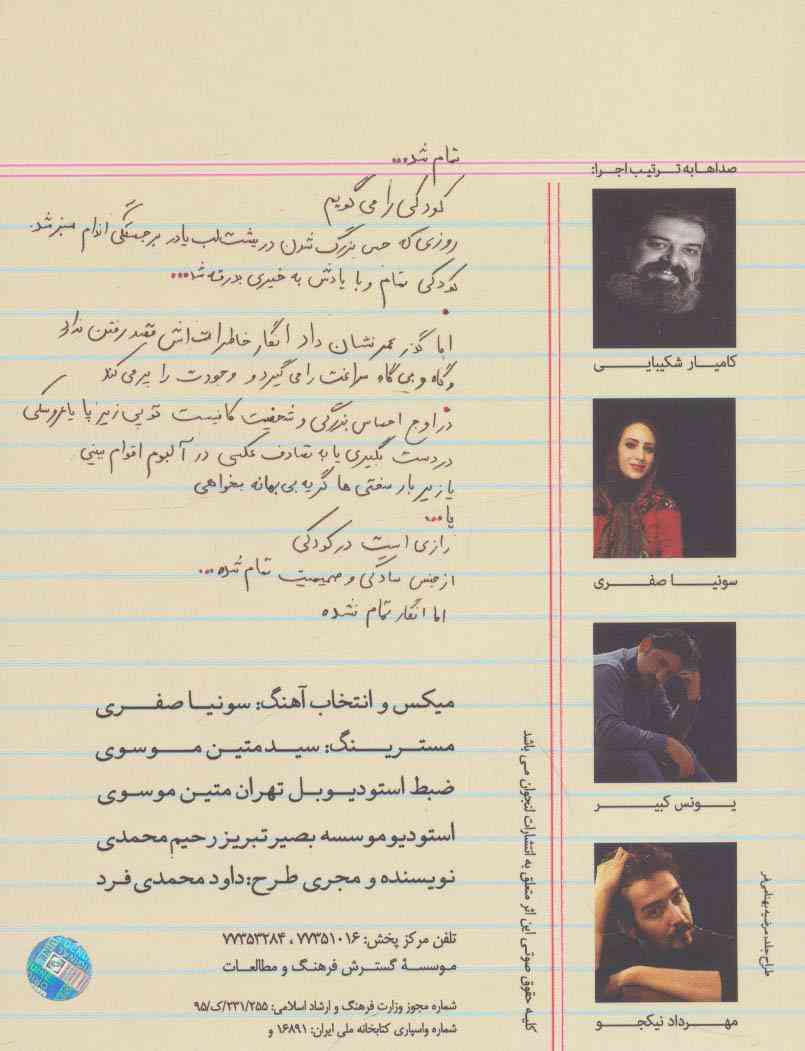 تمام شد...
کودکی را می گویم
روزی که حس بزرگ شدن در پشت لب یا در برجستگی اندام سبز شد.
کودکی تمام و با یادش به خیری بدرقه شد...
اما گذر عمر نشان داد انگار خاطرات اش قصد رفتن ندارد
و گاه و بی گاه سراغت را می گیرد و وجودت را پر می کند
در اوج احساس بزرگی و شخصیت کافیست توپی زیر پا یا عروسکی
در دست بگیری یا به تصادف عکسی در آلبوم اقوام ببینی
یا زیر بار سختی ها گریه بی بهانه بخواهی
یا...
رازی است در کودکی
از جنس سادگی و صمیمیت تمام شده...
اما انگار تمام نشده
میکس و انتخاب آهنگ: سونیا صفری
مسترینگ: سید متین موسوی
ضبط استودیو بل تهران متین موسوی
استودیو موسسه بصیر تبریز رحیم محمدی
نویسنده و مجری طرح: داود محمدی فرد
تلفن مرکز پخش: ۷۷۳۵۱۰۱۶ ، ۷۷۳۵۳۲۸۴
موسسهٔ گسترش فرهنگ و مطالعات
شماره مجوز وزارت فرهنگ و ارشاد اسلامی: ۹۵/ک/۳۳۱/۲۵۵
شماره واسپاری کتابخانه ملی ایران: ۱۶۸۹۱ و
کلیه حقوق صوتی این اثر متعلق به انتشارات نجوان می باشد
صداها به ترتیب اجرا:
کامیار شکیبایی
سونیا صفری
یونس کبیر
مهرداد نیکجو
طراح جلد: مرضیه